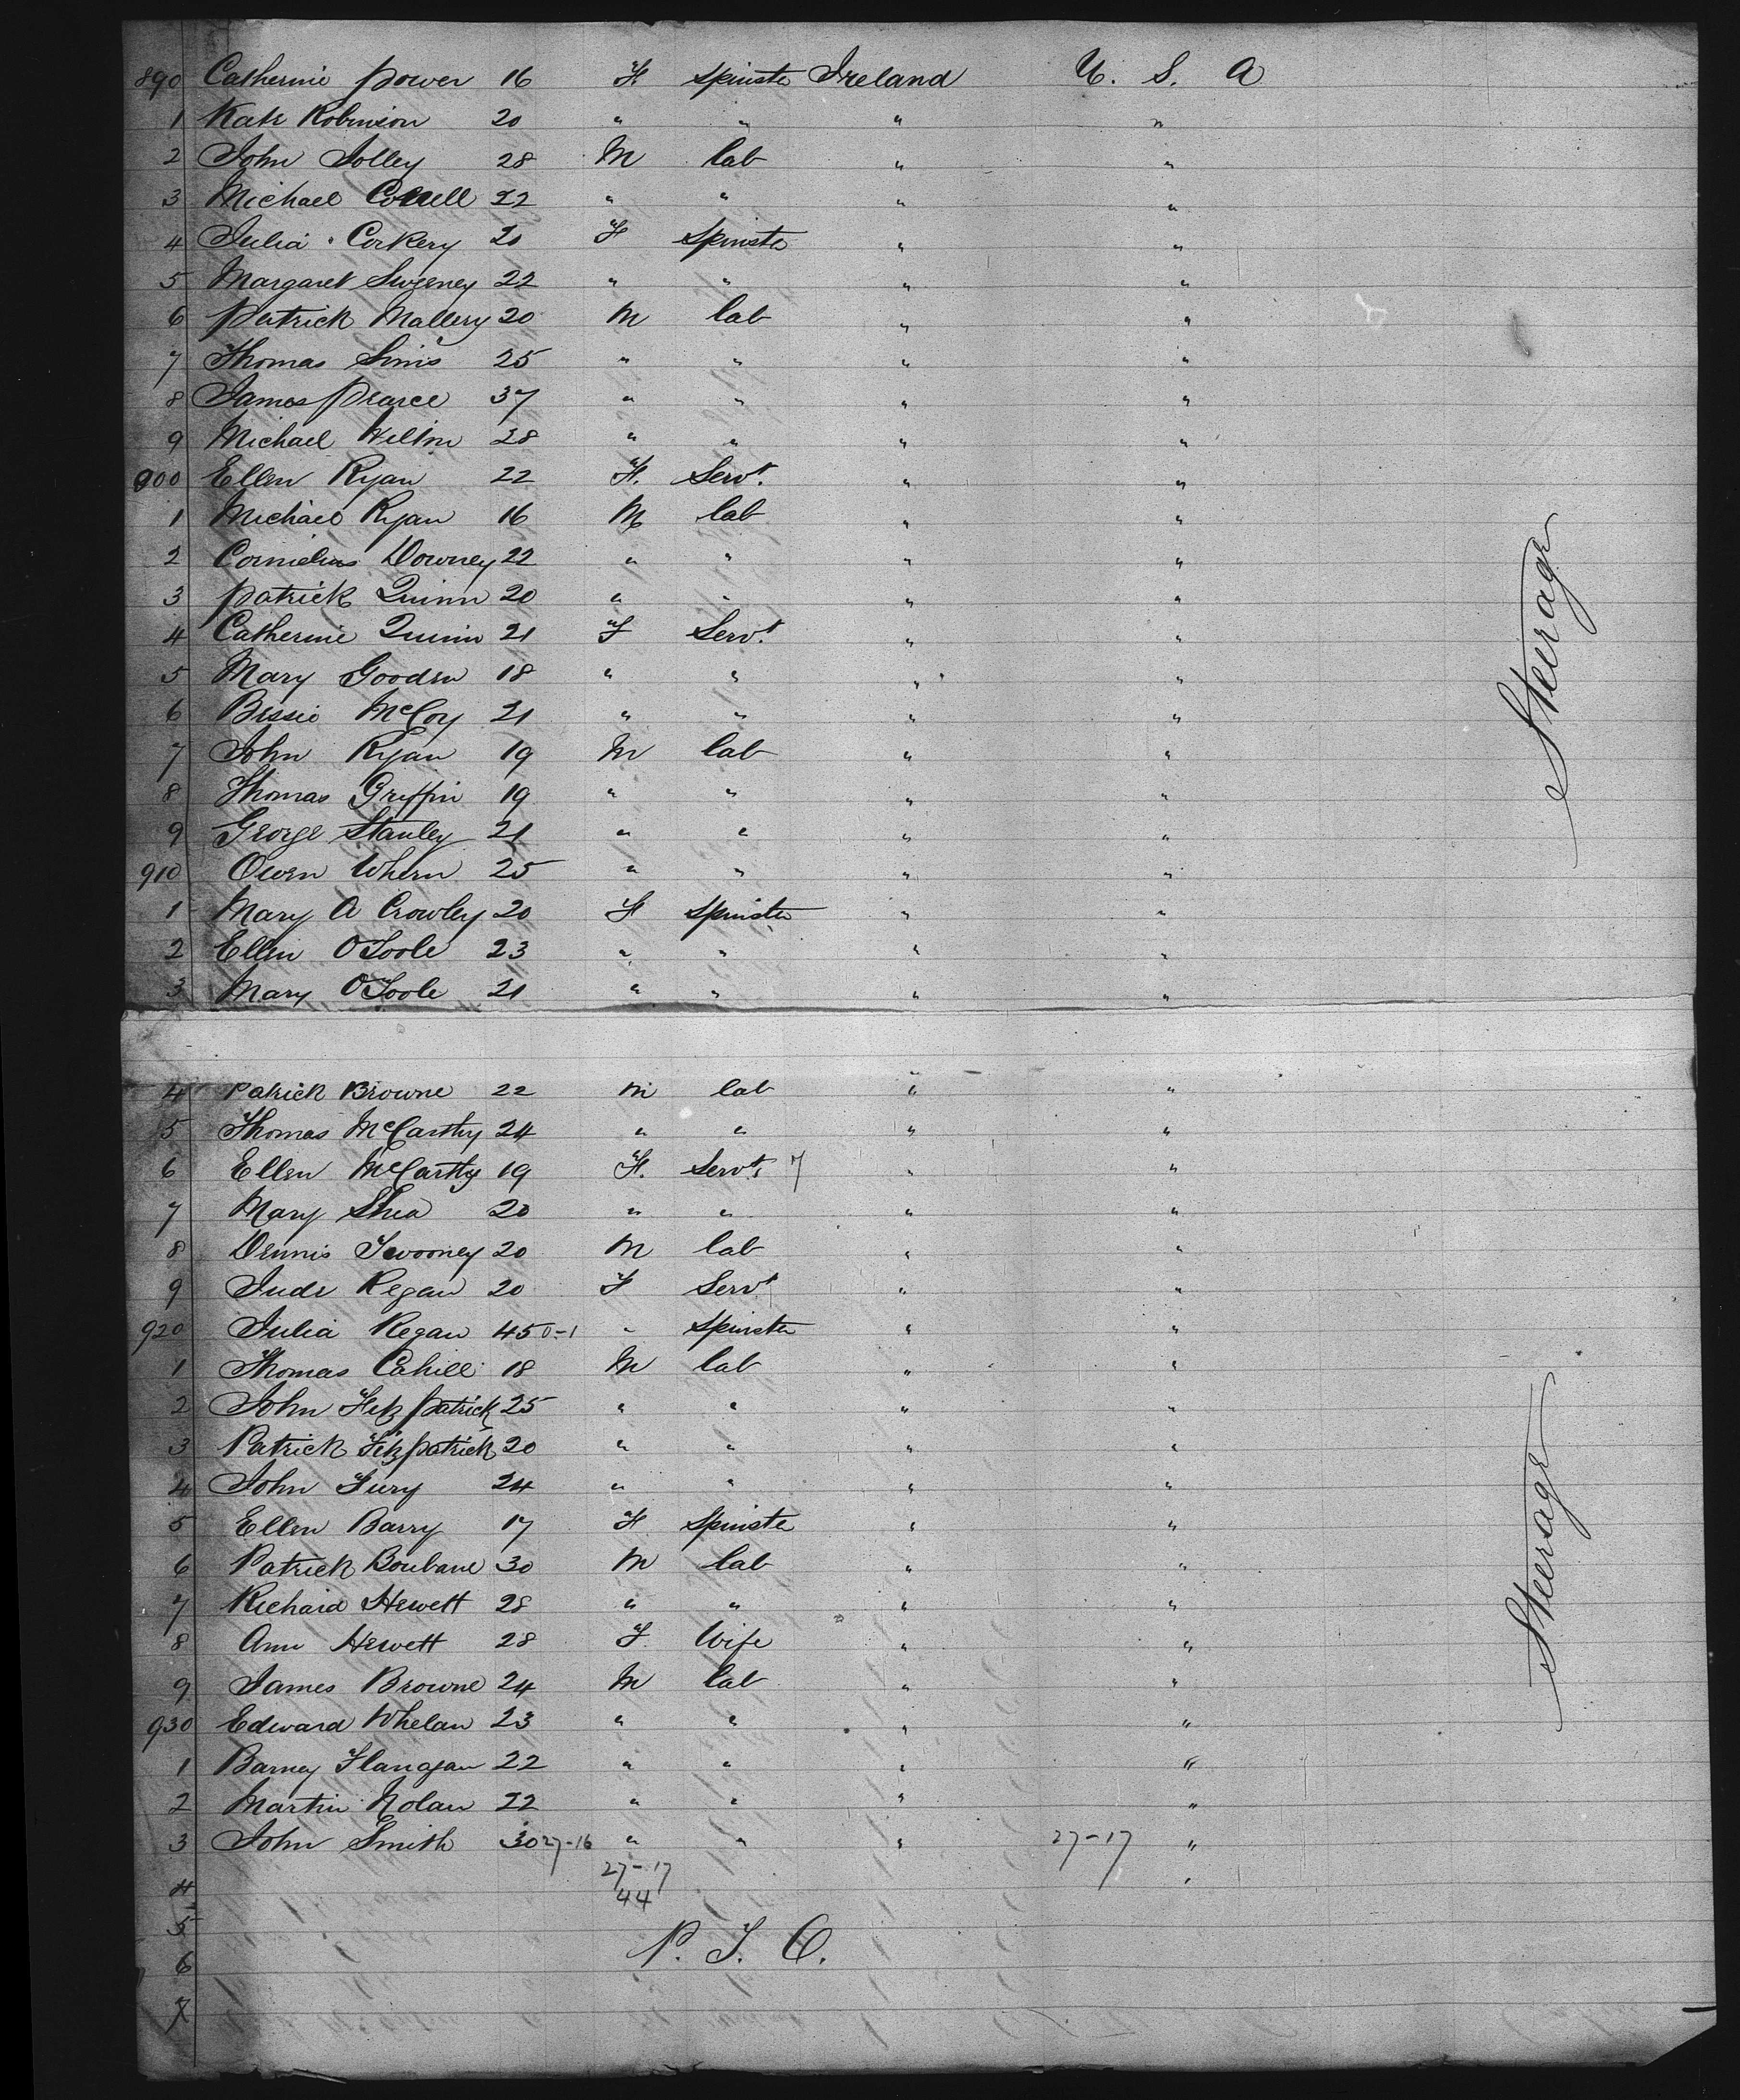 890 Catherine Power 16 F. Spinste Ireland U. S. A
1 Kate Robinson 20 " " " "
2 John Jolley 28 M lab " "
3 Michael 22 " " " "
4 Julia Corkery 20 F Spinste " "
5 Margaret Sweeney 22 " " " "
6 Patrick Mallery 20 M lab " "
7 Thomas 25 " " " "
8 James Pearce 37 " " " "
9 Michael 28 " " " "
900 Ellen Ryan 22 F. Servt. " "
1 Michael Ryan 16 M lab " "
2 Cornelius Downey 22 " " " "
3 Patrick Quinn 20 " " " "
4 Catherine Quinn 21 F Servt. " "
5 Mary Gooden 18 " " " "
6 Bessie McCoy 21 " " " "
7 John Ryan 19 M lab " "
8 Thomas Griffin 19 " " " "
9 George Stanley 21 " " " "
910 Owen Whern 25 " " " "
1 Mary A Crowley 20 F Spinste " "
2 Ellen OToole 23 " " " "
3 Mary OToole 21 " " " "
Steerage
4 Patrick Browne 22 M lab " "
5 Thomas McCarthy 24 " " " "
6 Ellen McCarthy 19 F. Servt. 7 " "
7 Mary Shea 20 " " " "
8 Dennis Twomey 20 M lab " "
9 Jude Regan 20 F Servt " "
920 Julia Regan 45 0-1 " Spinste " "
1 Thomas Cahill 18 M lab " "
2 John Fitzpatrick 25 " " " "
3 Patrick Fitzpatrick 20 " " " "
4 John Fury 24 " " " "
5 Ellen Barry 17 F Spinste " "
6 Patrick 30 M lab " "
7 Richard Hewett 28 " " " "
8 Ann Hewett 28 F. Wife " "
9 James Browne 24 M lab " "
930 Edward Whelan 23 " " " "
1 Barney Flanagan 22 " " " "
2 Martin Nolan 22 " " " "
3 John Smith 30 27-16 " " " 27-17 "
4 27-17 "
44
5
P. T. O.
6
7
Steerage